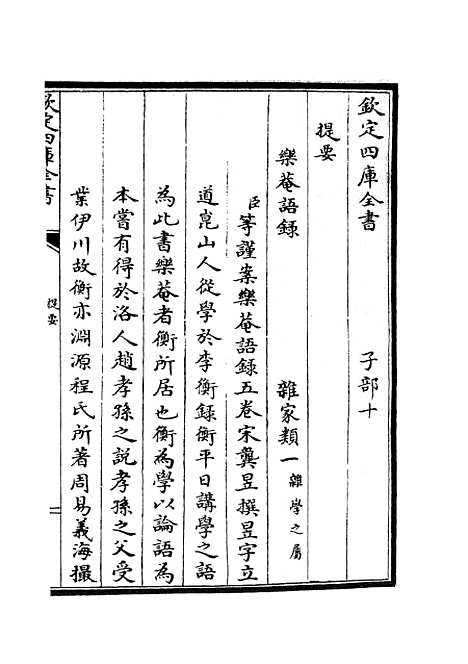 欽定四庫全書 子部十
提要
樂菴語録 雜家類一雜學之屬
臣等謹案樂菴語録五卷宋龔昱撰昱字立
道崑山人從學於李衡録衡平日講學之語
為此書樂菴者衡所居也衡為學以論語為
本嘗有得於洛人趙孝孫之說孝孫之父受
業伊川故衡亦淵源程氏所著周易義海撮
欽定四庫全書
提要
一